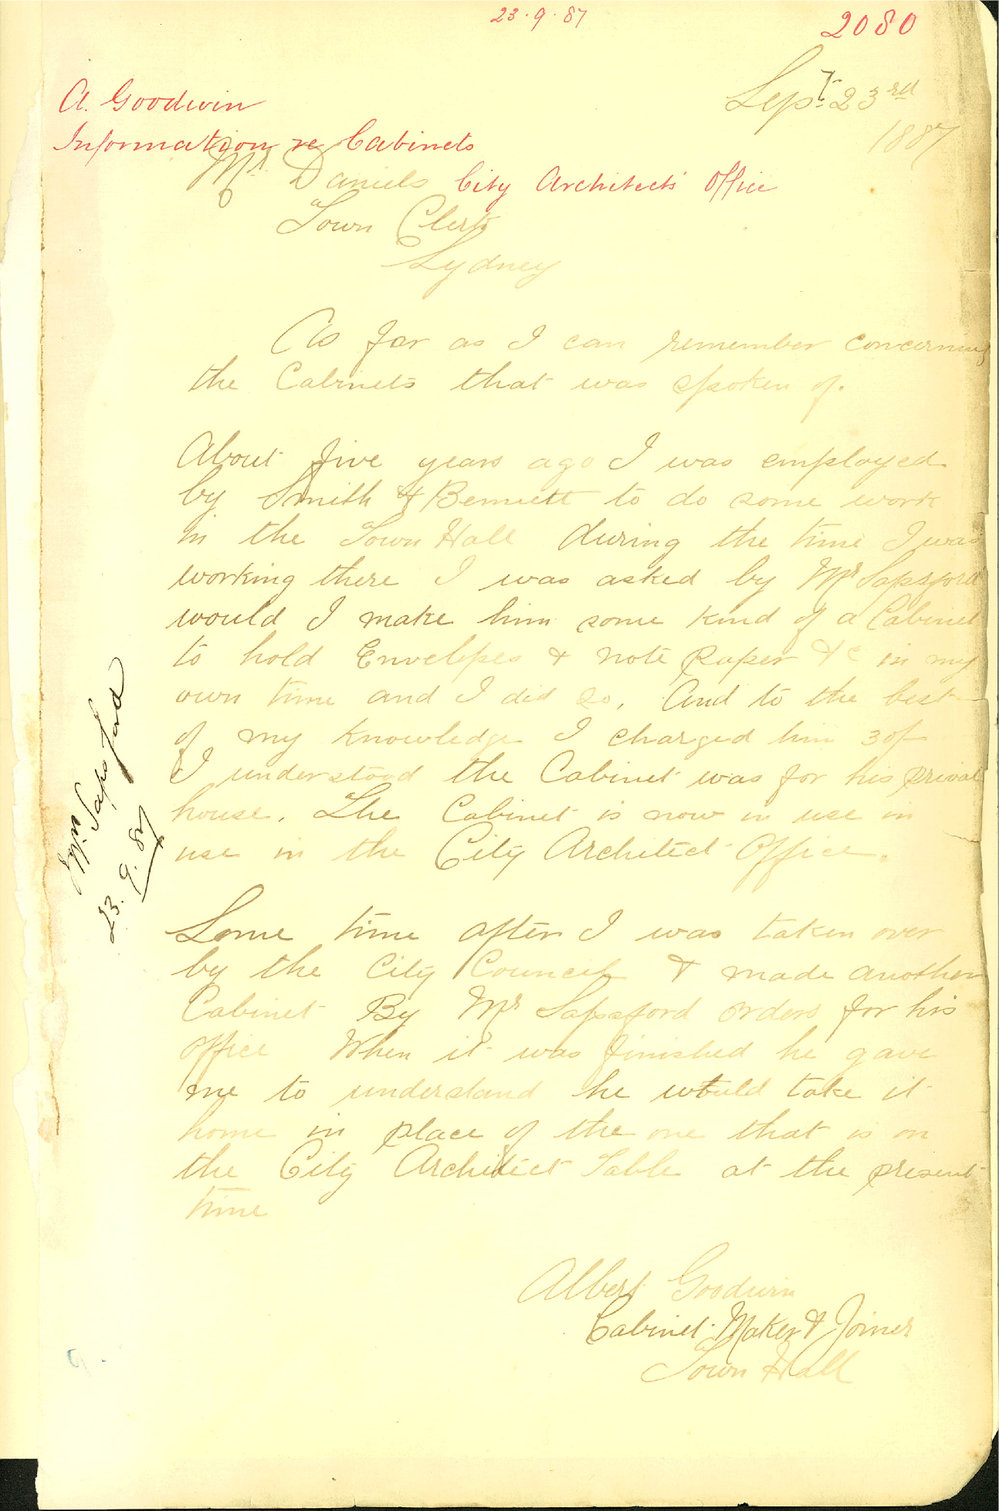 23.9.87
2080
Sept. 23rd
1887
A. Goodwin
Information re Cabinets
Mr Daniels City Architects' Office
Town Clerk
Sydney
As far as I can remember concerning
the Cabinets that was spoken of.
About five years ago I was employed
by Smith & Bennett to do some work
in the Town Hall during the time I was
working there I was asked by Mr Sapsford
would I make him some kind of a Cabinet
to hold Envelopes & note paper &c in my
own time and I did so, And to the best
of my knowledge I charged him 30/-
I understood the Cabinet was for his privat
house. The Cabinet is now in use in
use in the City Architect Office.
Some time after I was taken over
by the City Council & made another
Cabinet By Mr Sapsford orders for his
office When it was finished he gave
me to understand he would take it
home in place of the one that is on
the City Architect Table at the present
time
Albert Goodwin
Cabinet Maker & Joiner
Town Hall
Mr. Sapsford
23.9.87